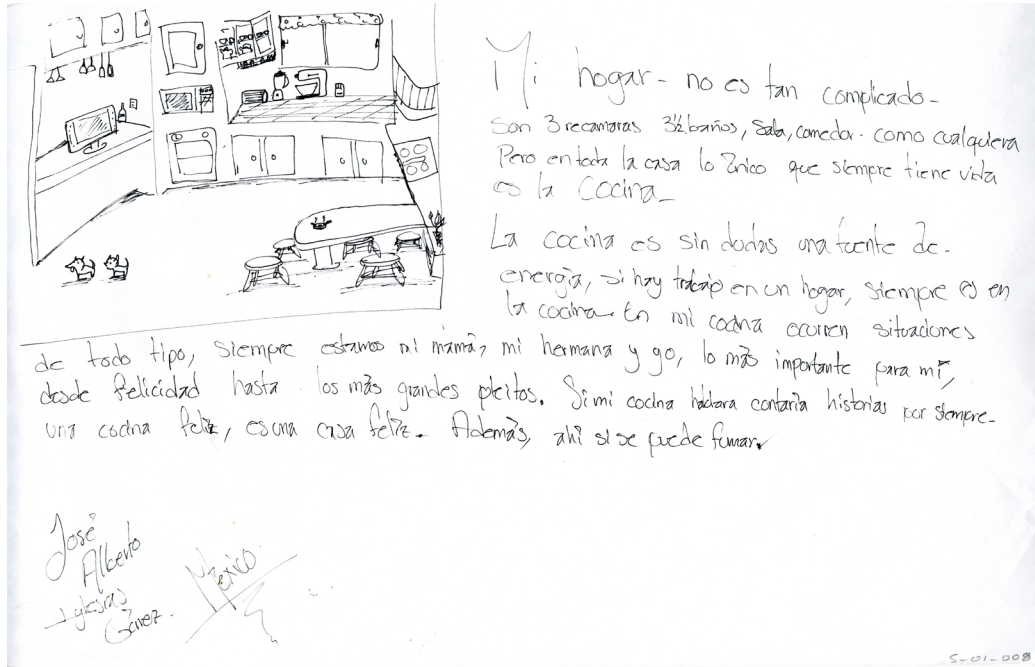 Mi hogar - no es tan complicado -
son 3 recamaras 3½ baños, Sala, comedor. como cualquiera
Pero en toda la casa lo único que siempre tiene vida
es la Cocina -
La cocina es sin dudas una fuente de
energía, si hay trabajo en un hogar, siempre es en
la cocina - En mi cocina ocurren situaciones
de todo tipo, siempre estamos mi mamá, mi hermana y yo, lo más importante para mí,
desde felicidad hasta los más grandes pleitos. Si mi cocina hablara contaria historias por siempre -
una cocina feliz, es una casa feliz. Además, ahí si se puede fumar.
José
Alberto
Iglesias
México
S-01-008